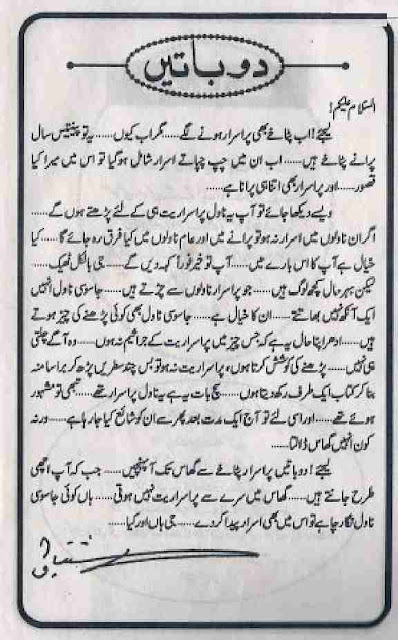 دو باتیں
السلام علیکم!
لیجئے! اب پٹاخے بھی پراسرار ہونے لگے..... مگر اب کیوں..... یہ تو پینتیس سال
پرانے پٹاخے ہیں..... اب ان میں چپ چپاتے اسرار شامل ہو گیا تو اس میں میرا کیا
قصور..... اور پراسرار بھی اتنا ہی پرانا ہے.....
ویسے دیکھا جائے تو آپ یہ ناول پراسراریت ہی کے لئے پڑھتے ہوں گے.....
اگر ان ناولوں میں اسرار نہ ہو تو پرانے میں اور عام ناولوں میں کیا فرق رہ جائے گا..... کیا
خیال ہے آپ کا اس بارے میں..... آپ تو خیر فوراً کہہ دیں گے..... جی بالکل ٹھیک.....
لیکن بہرحال کچھ لوگ ہیں..... جو پراسرار ناولوں سے چڑتے ہیں..... جاسوسی ناول انہیں
ایک آنکھ نہیں بھاتے..... ان کا خیال ہے..... جاسوسی ناول بھی کوئی پڑھنے کی چیز ہوتے
ہیں..... ادھر اپنا حال یہ ہے کہ جس چیز میں پراسراریت کے جراثیم نہ ہوں..... وہ آگے چلتی
ہی نہیں..... پڑھنے کی کوشش کرتا ہوں، پراسراریت نہ ہو تو بس چند سطریں پڑھ کر برا سا منہ
بنا کر کتاب ایک طرف رکھ دیتا ہوں..... سچ بات یہ ہے یہ ناول پراسرار تھے..... تبھی تو مشہور
ہوئے تھے..... اور اسی لئے تو آج ایک مدت بعد پھر سے ان کو شائع کیا جا رہا ہے..... ورنہ
کون انہیں گھاس ڈالتا.....
لیجئے! دو باتیں پراسرار پٹاخے سے گھاس تک آ پہنچیں..... جب کہ آپ اچھی
طرح جانتے ہیں..... گھاس میں سرے سے پراسراریت نہیں ہوتی..... ہاں کوئی جاسوسی
ناول نگار چاہے تو اس میں بھی اسرار پیدا کر دے..... جی ہاں اور کیا.....